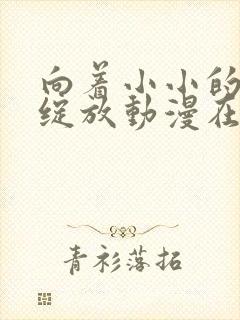 向着小小的
綻放動漫在
青衫落拓